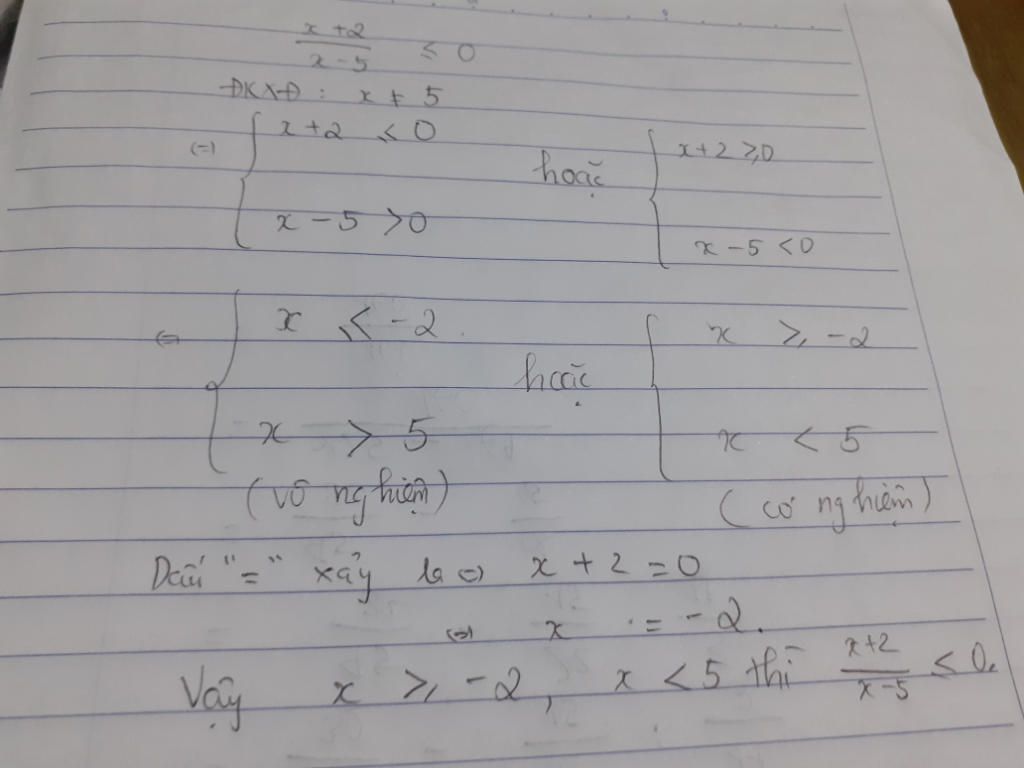 x+2 / x-5 ≤ 0
ĐKXĐ: x ≠ 5
(=) { x+2 ≤ 0 hoặc { x+2 ≥ 0
x-5 > 0 x-5 < 0
(=) { x ≤ -2 hoặc { x ≥ -2
x > 5 x < 5
(vô nghiệm) (có nghiệm)
Dấu "=" xảy ra (=) x + 2 = 0
(=) x = -2.
Vậy x ≥ -2, x < 5 thì x+2 / x-5 ≤ 0.